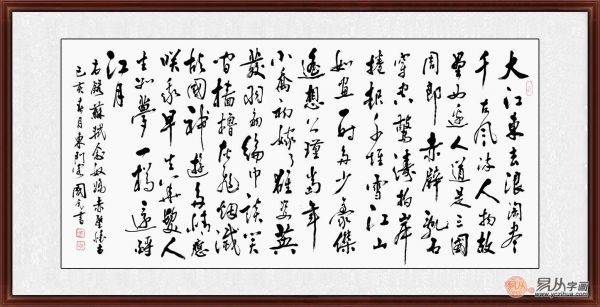 大江東去浪淘尽
千古風流人物故
壘西邊人道是三國
周郎赤壁亂石
穿空驚濤拍岸
捲起千堆雪江山
如畫一時多少豪傑
遙想公瑾當年
小喬初嫁了雄姿英
發羽扇綸巾談笑
間檣櫓灰飛煙滅
故國神遊多情應
笑我早生華髮人
生如夢一樽還酹
江月
右錄蘇軾念奴嬌赤壁懷古
己亥春月 國 書
易从字画
www.yczihua.com